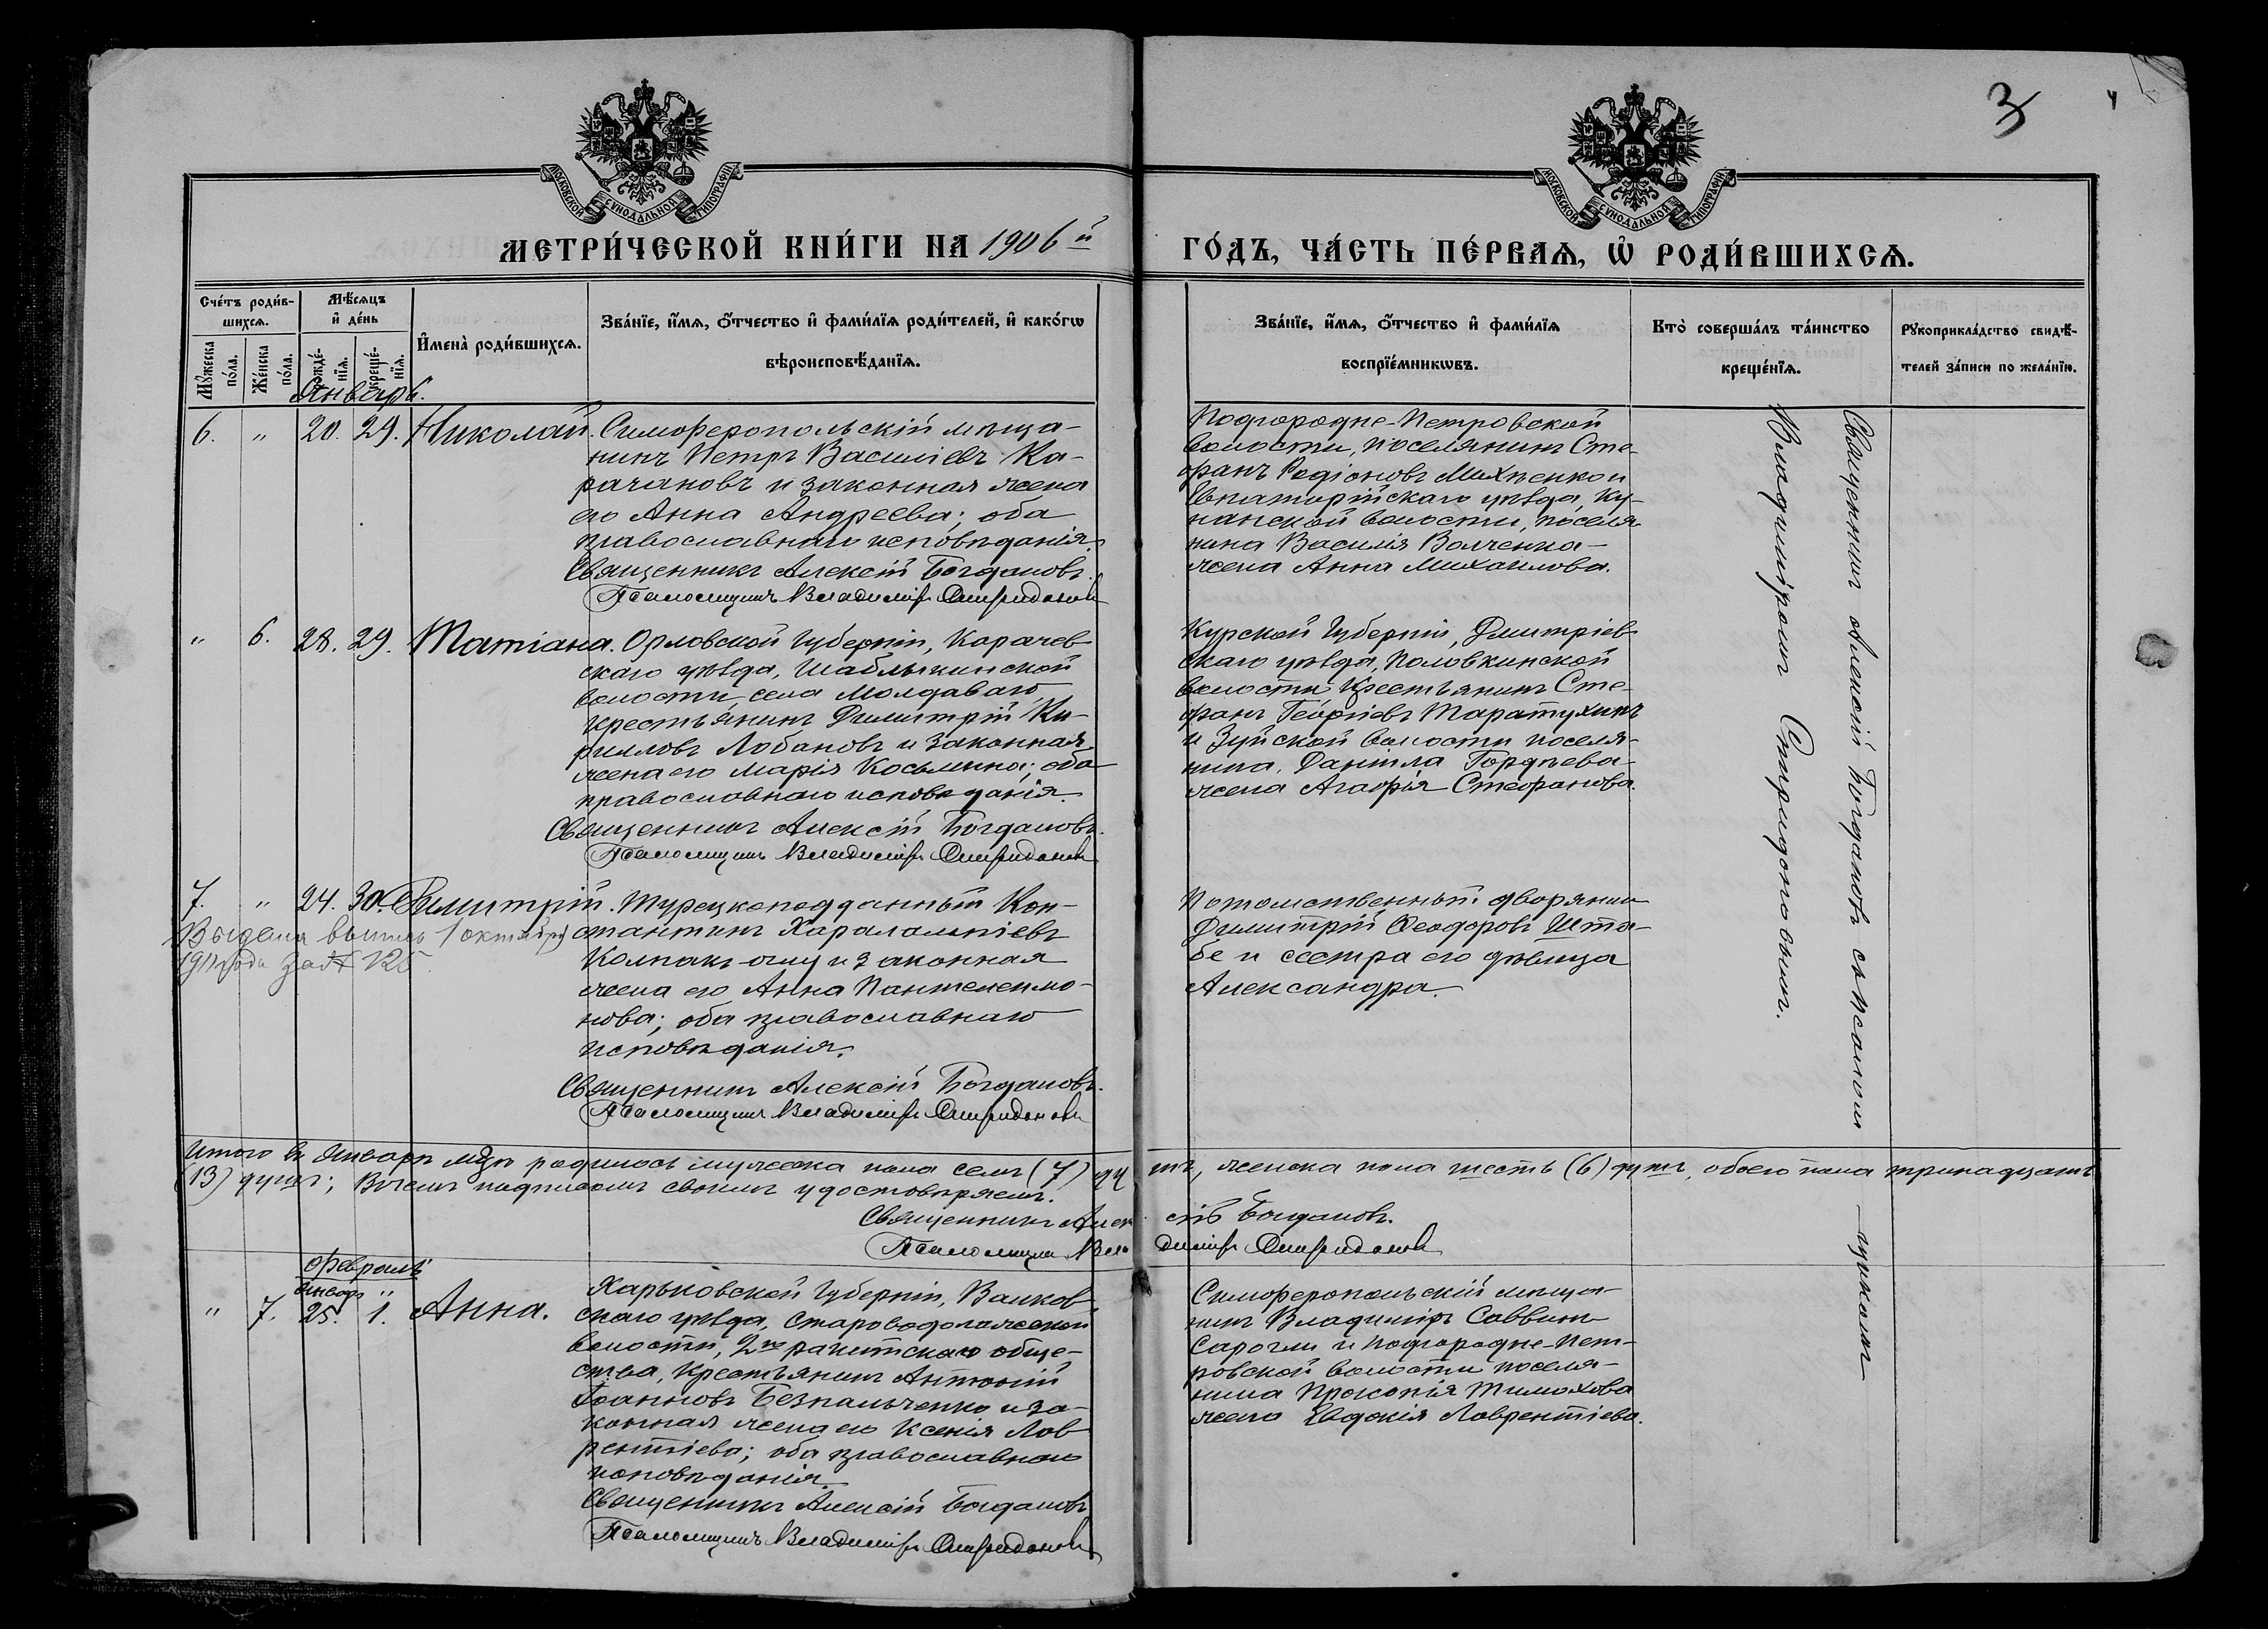 3
МОСКОВСКОЙ СУНОДАЛЬНОЙ ТИПОГРАФІИ
МОСКОВСКОЙ СУНОДАЛЬНОЙ ТИПОГРАФІИ
МЕТРИ́ЧЕСКОЙ КНИ́ГИ НА 1906й
ГО́ДЪ, ЧА́СТЬ ПЕ́РВАѦ, Ѡ҆ РОДИ́ВШИХСѦ.
Сче́тъ роди́в-
шихсѧ.
Мѣ́сѧцъ
и҆ де́нь
И҆мена̀ роди́вшихсѧ.
Зва́нїе, и҆́мѧ, ѻ҆́тчество и҆ фами́лїѧ роди́телей, и҆ како́гѡ
вѣроисповѣ́данїѧ.
Мꙋ́жеска
по́ла.
Же́нска
по́ла.
рожде́-
нїѧ.
креще́-
нїѧ.
Зва́нїе, и҆́мѧ, ѻ҆́тчество и҆ фами́лїѧ
воспрїе́мникѡвъ.
Кто̀ соверша́лъ та́инство
креще́нїѧ.
Рꙋкоприкла́дство свидѣ́-
телей за́писи по жела́нїю.
Январь.
6. " 20. 29. Николай.
Симферопольскій мѣща-
нинъ Петръ Василіевъ Ка-
рачановъ и законная жена
его Анна Андреева; оба
православнаго исповѣданія.
Священникъ Алексій Богдановъ.
Псаломщикъ Владиміръ Спиридоновъ
Подгородне-Петровской
волости, поселянинъ Сте-
фанъ Родіоновъ Михненко и
Евпаторійскаго уѣзда, Ку-
нанской волости, поселя-
нина Василія Волченка
жена Анна Михаилова.
" 6. 28. 29. Татіана.
Орловской губерніи, Карачев-
скаго уѣзда, Шаблыкинской
волости, села Молдаваго,
крестьянинъ Димитрій Ки-
рилловъ Лобановъ и законная
жена его Марія Косьмина; оба
православнаго исповѣданія.
Священникъ Алексій Богдановъ.
Псаломщикъ Владиміръ Спиридоновъ
Курской губерніи, Дмитріев-
скаго уѣзда, Половкинской
волости крестьянинъ Сте-
фанъ Георгіевъ Таратухинъ
и Зуйской волости поселя-
нина, Даніила Гордѣева
жена Агафія Стефанова.
7. " 24. 30. Димитрій.
Выдана выпись 1 октября
1911 года за № 125.
Турецкоподданный Кон-
стантинъ Харалампіевъ
Колпакъ-оглу и законная
жена его Анна Пантелеимо-
нова; оба православнаго
исповѣданія.
Священникъ Алексій Богдановъ.
Псаломщикъ Владиміръ Спиридоновъ
Потомственный дворянин
Димитрій Ѳеодоровъ Шта-
бе и сестра его дѣвица
Александра.
Священникъ Алексій Богдановъ съ псалом-
щикомъ
Владиміромъ Спиридоновымъ.
Итого въ январѣ мѣсяцѣ родилось мужеска пола семь (7) душъ, женска пола шесть (6) душъ, обоего пола тринадцать
(13) душъ; Въ чемъ подписомъ своимъ удостовѣряемъ.
Священникъ Алексій Богдановъ.
Псаломщикъ Владиміръ Спиридоновъ
Февраль
Январь "
" 7. 25. 1. Анна.
Харьковской губерніи, Валков-
скаго уѣзда, Староводолажской
волости, 2го ракитскаго обще-
ства, крестьянинъ Антоній
Іоанновъ Безпальченко и за-
конная жена его Ксенія Лав-
рентіева; оба православнаго
исповѣданія.
Священникъ Алексій Богдановъ
Псаломщикъ Владиміръ Спиридоновъ
Симферопольскій мѣща-
нинъ Владиміръ Саввинъ
Сарогли и Подгородне-Пет-
ровской волости поселя-
нина Прокопія Тимохова
жена Евдокія Лаврентіева.